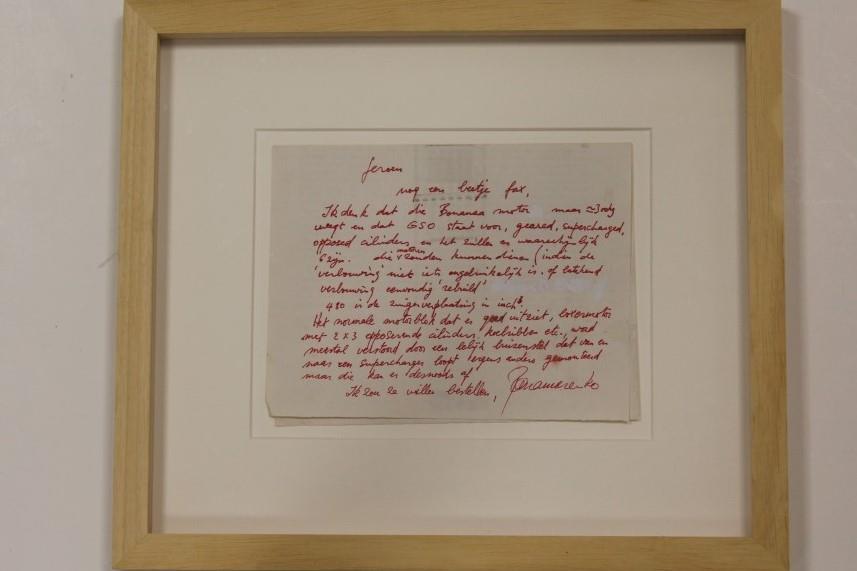 Jeroen
nog een beetje fax,
Ik denk dat die Bonanza motor maar
weegt en dat GSO staat voor, geared, supercharged,
opposed cilinders en het zullen er waarschijnlijk
6 zijn. die motoren zouden kunnen dienen (indien de
'verbouwing' niet iets ongebruikelijk is. of betekend
verbouwing eenvoudig 'rebuild'
480 is de zuigerverplaatsing in inch³.
Het normale motorblok dat er goed uitziet, boxermotor
met 2 x 3 opposerende cilinders, koelribben etc., word
meestal verstoord door een lelijk buizenstel dat van en
naar een supercharger loopt ergens anders gemonteerd
maar die kan er desnoods af
Ik zou ze willen bestellen, Panamarenko